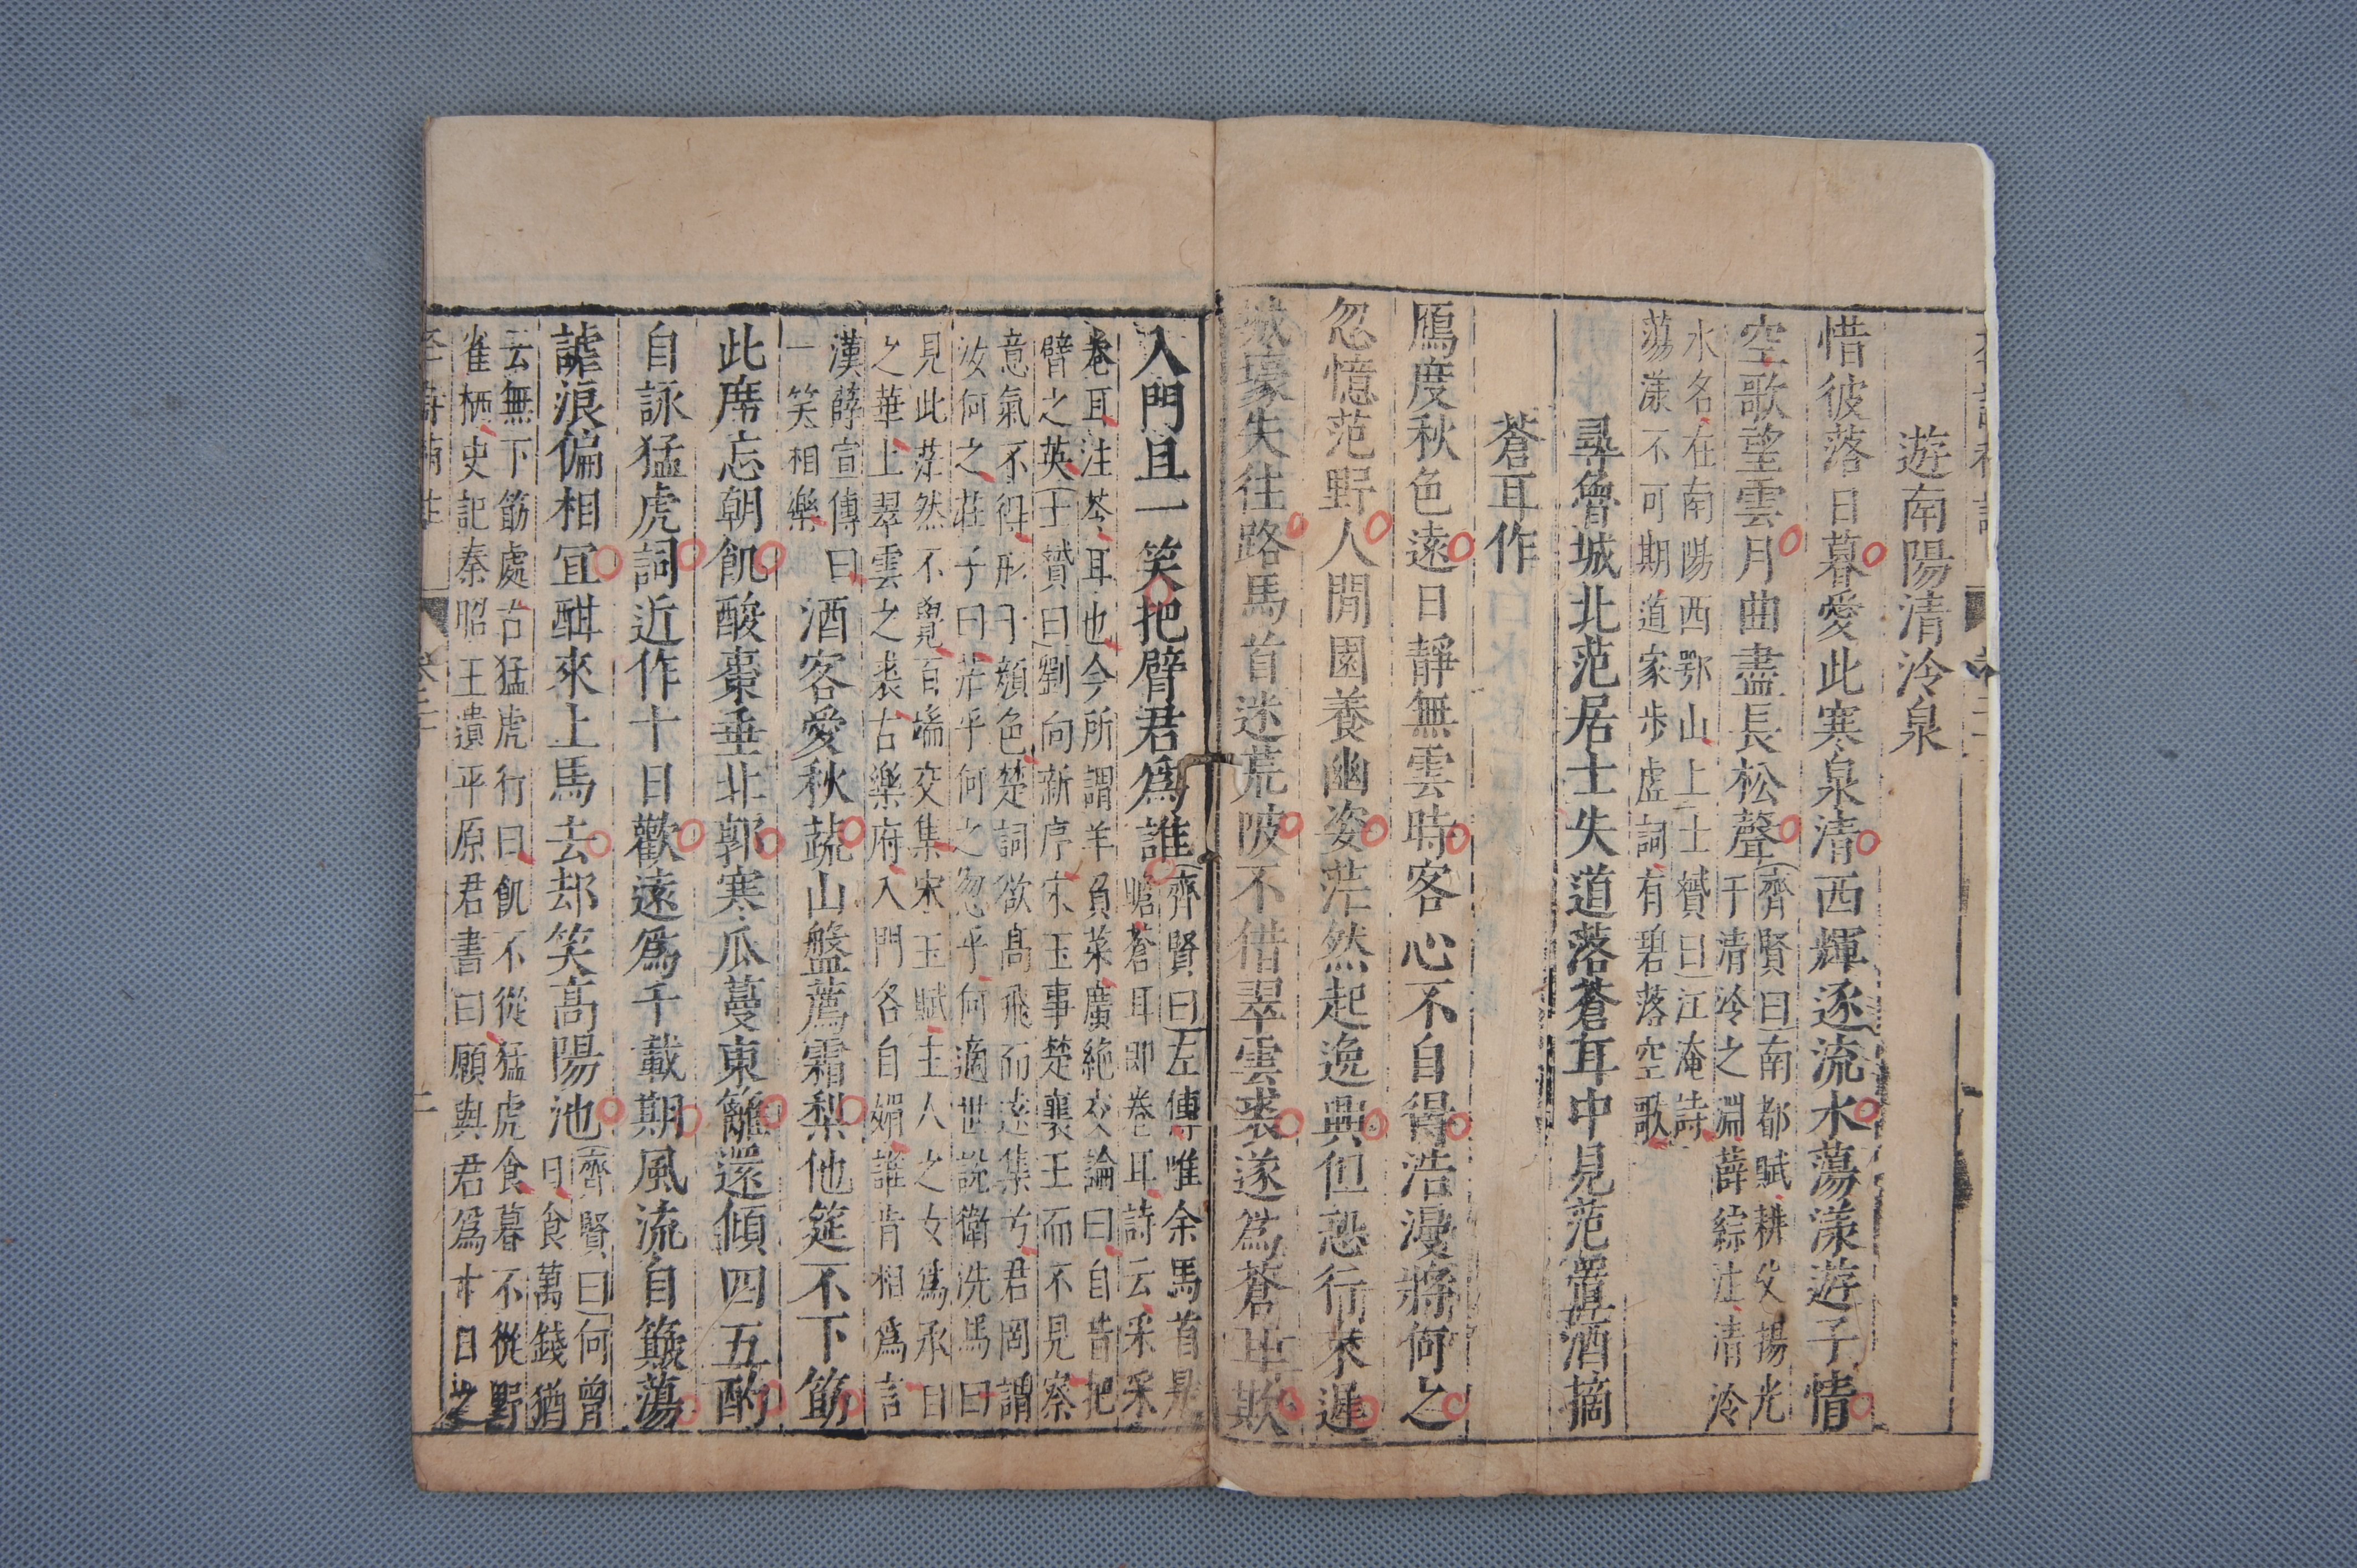 遊南陽清泠泉
惜彼落日暮愛此寒泉清西輝逐流水蕩漾遊子情
空歌望雲月曲盡長松聲
齊賢曰南都賦耕父揚光
于清泠之淵薛綜注清泠
水名在南陽西鄂山上士贇曰江淹詩
蕩漾不可期道家步虛詞有碧落空歌
尋魯城北范居士失道落蒼耳中見范置酒摘
蒼耳作
鴈度秋色遠日靜無雲時客心不自得浩漫將何之
忽憶范野人閒園養幽姿茫然起逸興但恐行來遲
城壕失往路馬首迷荒陂不借翠雲裘遂為蒼耳欺
入門且一笑把臂君爲誰
齊賢曰左傳唯余馬首是
瞻蒼耳即卷耳詩云采采
卷耳注苓耳也今所謂羊負菜廣絶交論曰自昔把
臂之英士贇曰劉向新序宋玉事楚襄王而不見察
意氣不得形于顔色楚詞欲髙飛而遠集兮君罔謂
汝何之莊子曰茫乎何之忽乎何適世說衛洗馬曰
見此茫然不覺百端交集宋玉賦主人之女爲承日
之華上翠雲之裘古樂府入門各自媚誰肯相爲言
漢薛宣傳曰
一笑相樂
酒客愛秋蔬山盤薦霜梨他筵不下筯
此席忘朝飢酸棗垂北郭寒瓜蔓東籬還傾四五酌
自詠猛虎詞近作十日歡遠爲千載期風流自簸蕩
謔浪偏相宜酣來上馬去却笑高陽池
齊賢曰何曾
日食萬錢猶
云無下筯處古猛虎行曰飢不從猛虎食暮不從野
雀栖史記秦昭王遺平原君書曰願與君爲十日之